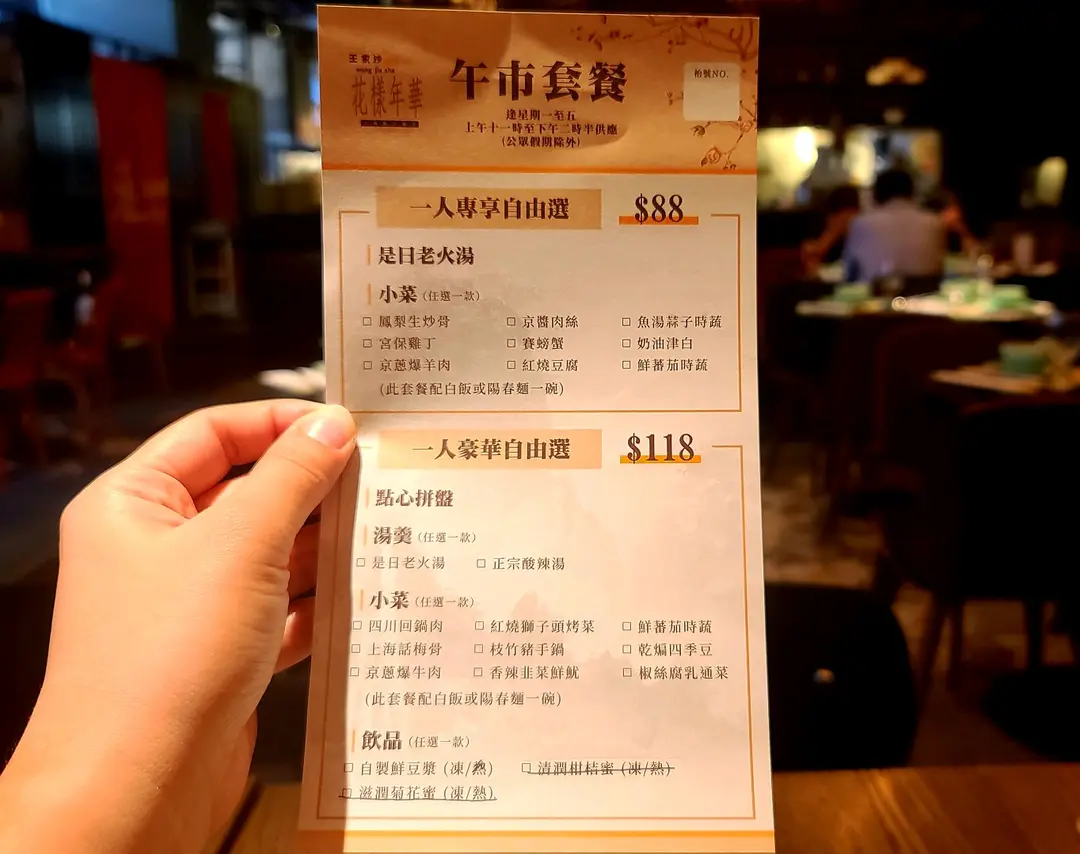 王家沙
wong jia sha
花樣年華
午市套餐
枱號NO.
逢星期一至五
上午十一時至下午二時半供應
(公眾假期除外)
一人專享自由選 $88
是日老火湯
小菜 (任選一款)
□ 鳳梨生炒骨 □ 京醬肉絲 □ 魚湯蒜子時蔬
□ 宮保雞丁 □ 賽螃蟹 □ 奶油津白
□ 京蔥爆羊肉 □ 紅燒豆腐 □ 鮮蕃茄時蔬
(此套餐配白飯或陽春麵一碗)
一人豪華自由選 $118
點心拼盤
湯羹 (任選一款)
□ 是日老火湯 □ 正宗酸辣湯
小菜 (任選一款)
□ 四川回鍋肉 □ 紅燒獅子頭烤菜 □ 鮮蕃茄時蔬
□ 上海話梅骨 □ 枝竹豬手鍋 □ 乾煸四季豆
□ 京蔥爆牛肉 □ 香辣韭菜鮮魷 □ 椒絲腐乳通菜
(此套餐配白飯或陽春麵一碗)
飲品 (任選一款)
□ 自製鮮豆漿 (凍/熱) □ 清潤柑桔蜜 (凍/熱)
□ 滋潤菊花蜜 (凍/熱)